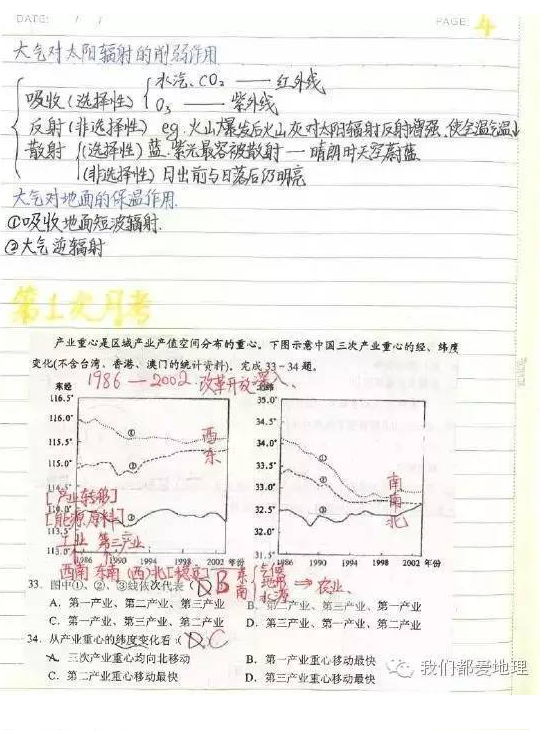 DATE: / /
PAGE: 4
大气对太阳辐射的削弱作用
吸收(选择性) 水汽、CO₂ —— 红外线
O₃ —— 紫外线
反射(非选择性) eg.火山爆发后火山灰对太阳辐射反射增强,使全温气温
散射 (选择性)蓝.紫光最容被散射 — 晴朗时天空蔚蓝
(非选择性)日出前与日落后仍明亮
大气对地面的保温作用.
①吸收地面短波辐射.
②大气逆辐射
第1次月考
产业重心是区域产业产值空间分布的重心。下图示意中国三次产业重心的经、纬度
变化(不含台湾、香港、澳门的统计资料)。完成33-34题。
1986 — 2002 改革开放深入、
东经
116.5°
116.0°
115.5°
115.0°
114.5°
113.0°
① 西
② 东
③
[产业转移]
[能源原料]
工业 第三产业
1986 1990 1994 1998 2002 年份
北纬
35.0°
34.5°
34.0°
33.5°
33.0°
32.5°
32.0°
31.5°
① 南
② 南
③ 北
1986 1990 1994 1998 2002 年份
西南 东南 (西)北[稳定]
33. 图中①、②、③线依次代表( D B
东 南 气候 地形 水源 ⇒ 农业、
A. 第一产业、第二产业、第三产业 B. 第二产业、第三产业、第一产业
C. 第一产业、第三产业、第二产业 D. 第三产业、第二产业、第一产业
34. 从产业重心的纬度变化看:( D.C )
A. 三次产业重心均向北移动 B. 第一产业重心移动最快
C. 第二产业重心移动最快 D. 第三产业重心移动最快
我们都爱地理